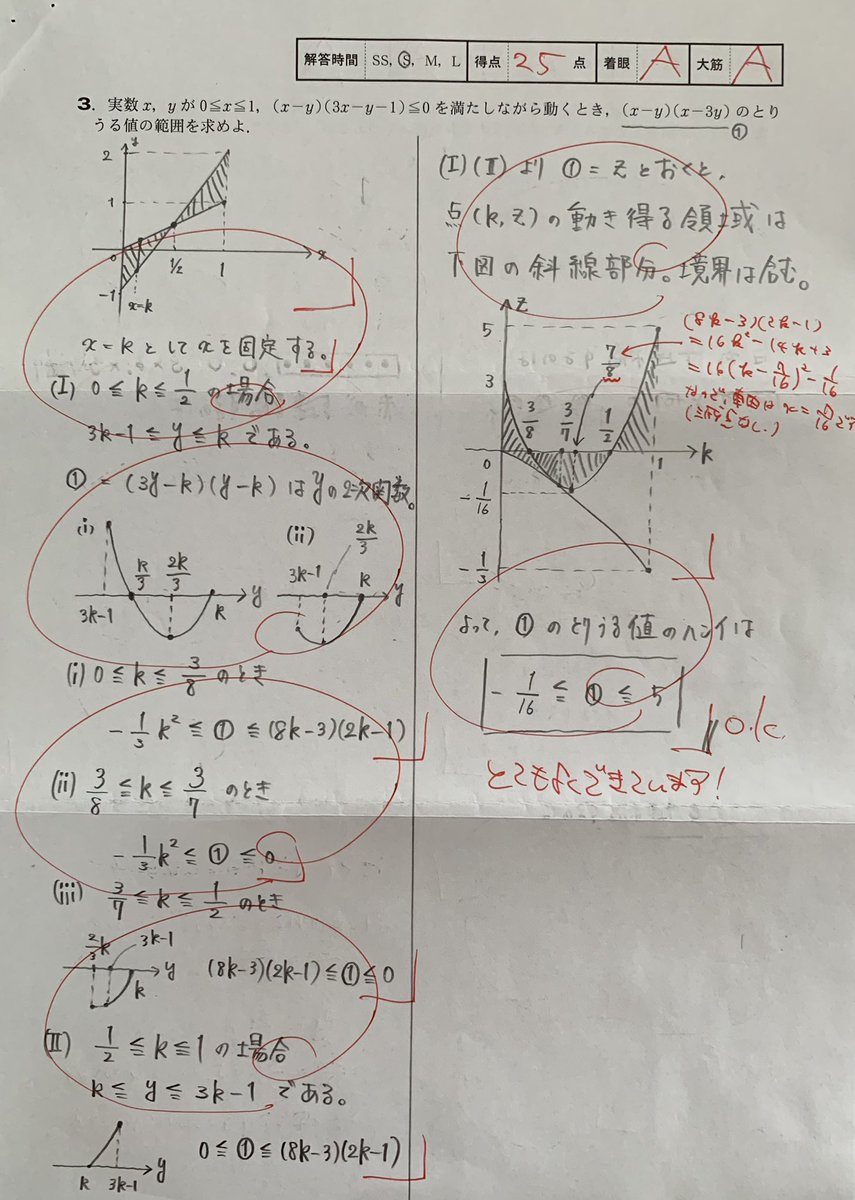 解答時間 SS, S, M, L 得点 25 点 着眼 A 大筋 A
3. 実数x, yが0≦x≦1, (x−y)(3x−y−1)≦0を満たしながら動くとき, (x−y)(x−3y)のとり
うる値の範囲を求めよ.
①
y
2
1
0
1/2
1
x
−1
x=k
x=kとしてxを固定する。
(I) 0≦k≦1/2の場合,
3k−1≦y≦kである。
①=(3y−k)(y−k)はyの2次関数。
(i)
k/3
2k/3
3k−1
k
y
(ii)
2k/3
3k−1
k
y
(i) 0≦k≦3/8のとき
−1/3k²≦①≦(8k−3)(2k−1)
(ii) 3/8≦k≦3/7のとき
−1/3k²≦①≦0
(iii) 3/7≦k≦1/2のとき
2/3k
3k−1
k
y
(8k−3)(2k−1)≦①≦0
(II) 1/2≦k≦1の場合
k≦y≦3k−1である。
k
3k−1
y
0≦①≦(8k−3)(2k−1)
(I)(II)より①=zとおくと,
点(k,z)の動き得る領域は
下図の斜線部分。境界は含む。
z
5
3
3/8
3/7
7/8
1/2
1
k
0
−1/16
−1/3
(8k−3)(2k−1)
=16k²−14k+3
=16(k−7/16)²−1/16
よって,①のとりうる値のハンイは
−1/16≦①≦5
o.k.
とてもよくできています!